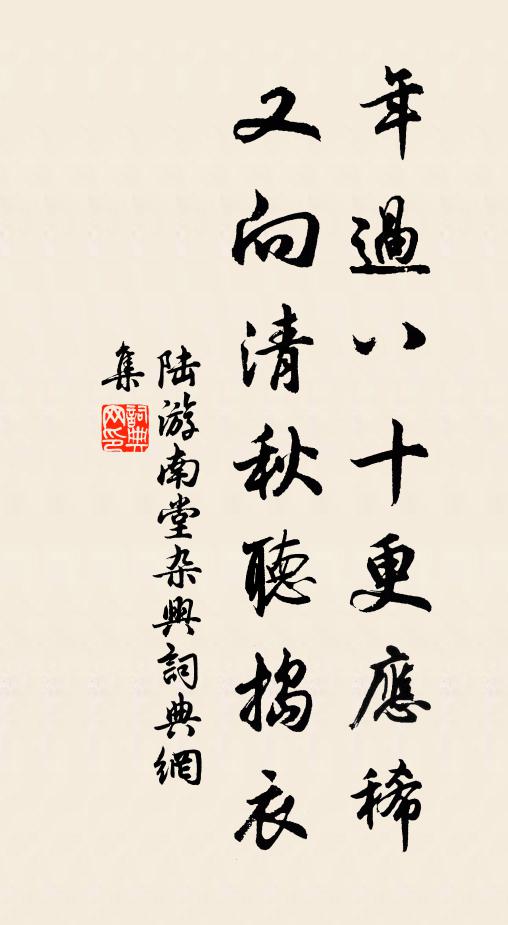 年過八十更應稀
又向清秋聽搗衣
陸游南堂杂興詞典網
集
詞典
网印